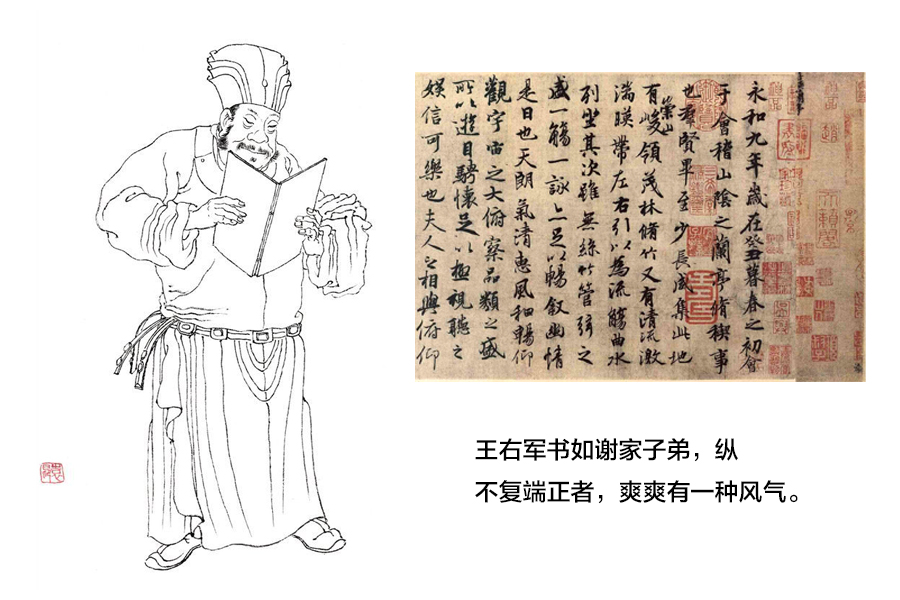 永和九年歲在癸丑暮春之初會
于會稽山陰之蘭亭脩稧事
也羣賢畢至少長咸集此地
有崇山峻領茂林脩竹又有清流激
湍暎帶左右引以為流觴曲水
列坐其次雖無絲竹管弦之
盛一觴一詠亦足以暢敘幽情
是日也天朗氣清惠風和暢仰
觀宇宙之大俯察品類之盛
所以遊目騁懷足以極視聽之
娛信可樂也夫人之相與俯仰
王右军书如谢家子弟，纵
不复端正者，爽爽有一种风气。